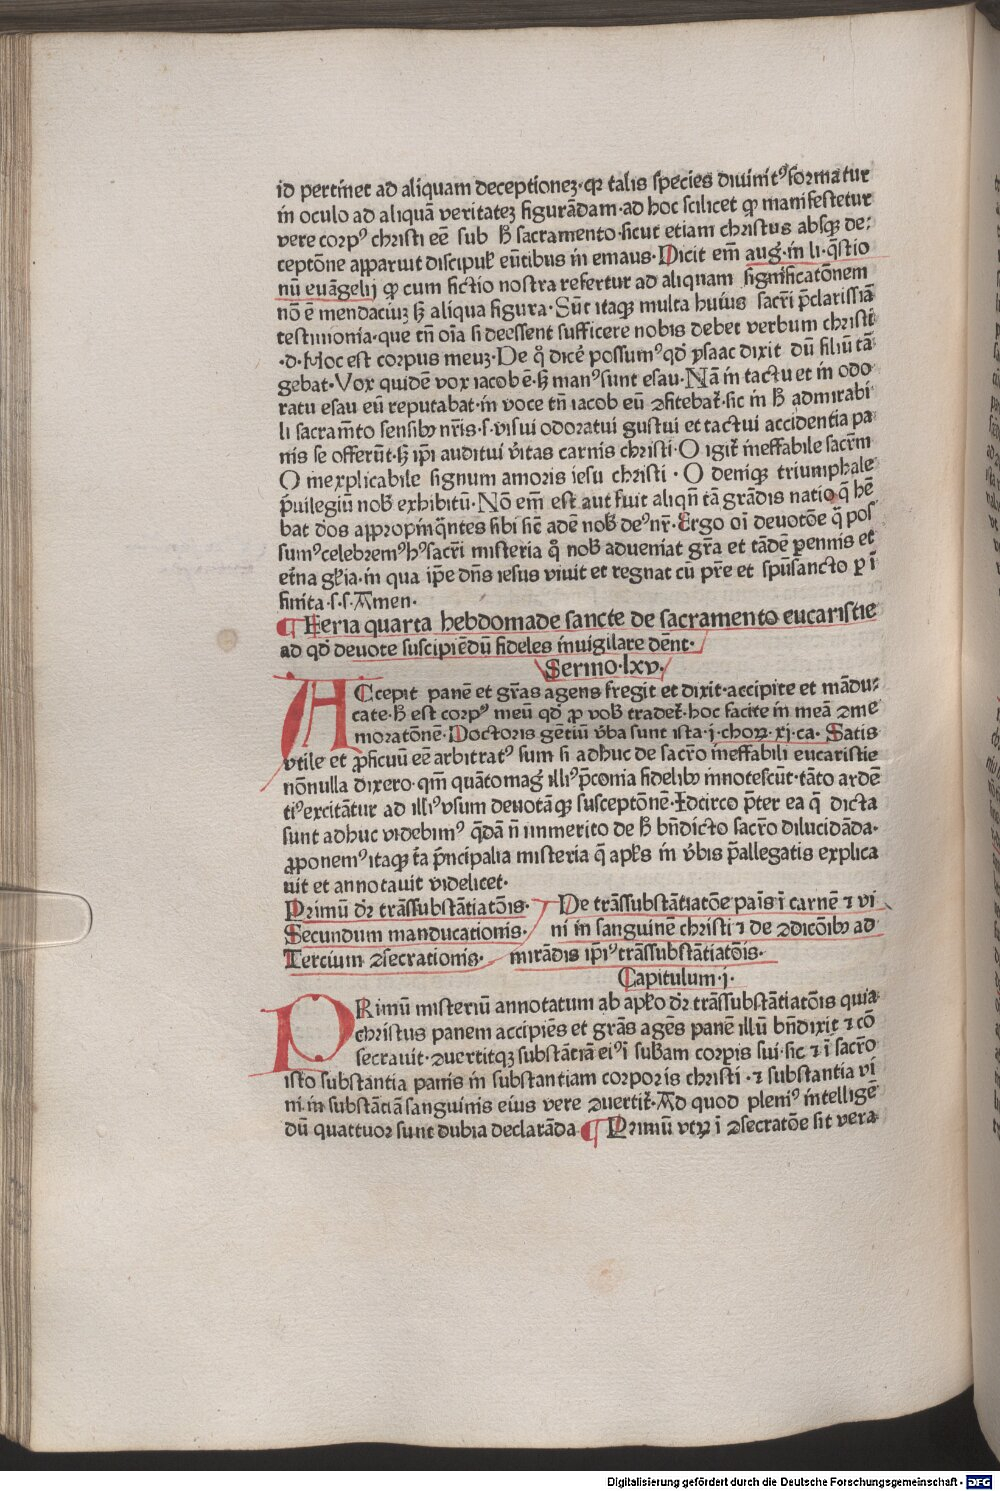 id pertinet ad aliquam deceptionez·qꝛ talis species diuinitꝰ formatur
in oculo ad aliquā veritatez figurādam·ad hoc scilicet ꝙ manifestetur
vere corpꝰ christi eē sub hͦ sacramento·sicut etiam christus absqꝫ de⸗
ceptōne apparuit discipul̕ eūtibus in emaus·Dicit em̄ aug̕·in li·q̄stio
nū euāgelij ꝙ cum fictio nostra refertur ad aliquam significatōnem
nō ē mendaciuz sꝫ aliqua figura·Sūt itaqꝫ multa huius sacr̄i p̄clarissiā
testimonia·que tn̄ oīa si deessent sufficere nobis debet verbum christi
·d·Hoc est corpus meuz·De qͦ dicē possumꝰ qd̕ ysaac dixit dū filiū tā
gebat·Vox quidē vox iacob ē·sꝫ manꝰ sunt esau·Nā in tactu et in odo
ratu esau eū reputabat·in voce tn̄ iacob eū ꝯfitebat̕·sic in hͦ admirabi
li sacram̄to sensibꝫ nr̄is·s·visui odoratui gustui et tactui accidentia pa
nis se offerūt·sꝫ ip̄i auditui v̄itas carnis christi·O igit̕ ineffabile sacr̄m
O inexplicabile signum amoris iesu christi·O deniqꝫ triumphale
p̄uilegiū nob̕ exhibitū·Nō em̄ est aut fuit aliqn̄ tā grādis natio q̄ hē
bat d̕os appropinq̄ntes sibi sic̄ adē nob̕ deꝰ nr̄·Ergo oī deuotōe q̄ pos
sumꝰ celebremꝰ hꝰ sacr̄i misteria qͦ nob̕ adueniat gr̄a et tādē ꝑennis et
et̄na gl̕ia·in qua ip̄e dn̄s iesus viuit et regnat cū pr̄e et spūsancto ꝑ ī
finita·s·s·Amen·
¶ Feria quarta hebdomade sancte de sacramento eucaristie
ad qd̕ deuote suscipiēdū fideles inuigilare dēnt·
Sermo·lxv·
ACcepit panē et gr̄as agens fregit et dixit·accipite et mādu⸗
cate·hͦ est corpꝰ meū qd̕ ꝓ vob̕ tradet̕·hoc facite in meā ꝯme
moratōnē·Doctoris gētiū v̄ba sunt ista·j·choꝝ·xj·ca·Satis
vtile et ꝓficuū eē arbitratꝰ sum si adhuc de sacr̄o ineffabili eucaristie
nōnulla dixero·qm̄ quātomag̕ illiꝰ p̄conia fidelibꝫ innotescūt·tāto ardē
tiꝰ excitātur ad illiꝰ vsum deuotāqꝫ susceptōnē·Idcirco p̄ter ea q̄ dicta
sunt adhuc videbimꝰ q̄dā n̄ immerito de hͦ bn̄dicto sacr̄o dilucidāda·
ꝓponemꝰ itaqꝫ t̄a p̄ncipalia misteria q̄ apl̕s in v̄bis p̄allegatis explica
uit et annotauit videlicet·
Primū dr̄ trāssubstātiatōis·
Secundum manducationis·
Tercium ꝯsecrationis·
De trāssubstātiatōe pais̄ ī carnē ⁊ vi
ni in sanguinē christi ⁊ de ꝯdicōibꝫ ad
mirādis ip̄iꝰ trāssubstātiatōis·
Capitulum·j·
PRimū misteriū annotatum ab apl̕o dr̄ trāssubstātiatōis quia
christus panem accipiēs et gr̄as agēs panē illū bn̄dixit ⁊ cō
secrauit·ꝯuertitqꝫ substātiā eiꝰ ī sub̄am corꝑis sui·sic ⁊ ī sacr̄o
isto substantia panis in substantiam corporis christi·⁊ substantia vi
ni in substātiā sanguinis eius vere ꝯuertit̕·Ad quod pleniꝰ intelligē
dū quattuor sunt dubia declarāda ¶ Primū vtꝝ ī ꝯsecratōe sit vera
Digitalisierung gefördert durch die Deutsche Forschungsgemeinschaft · DFG